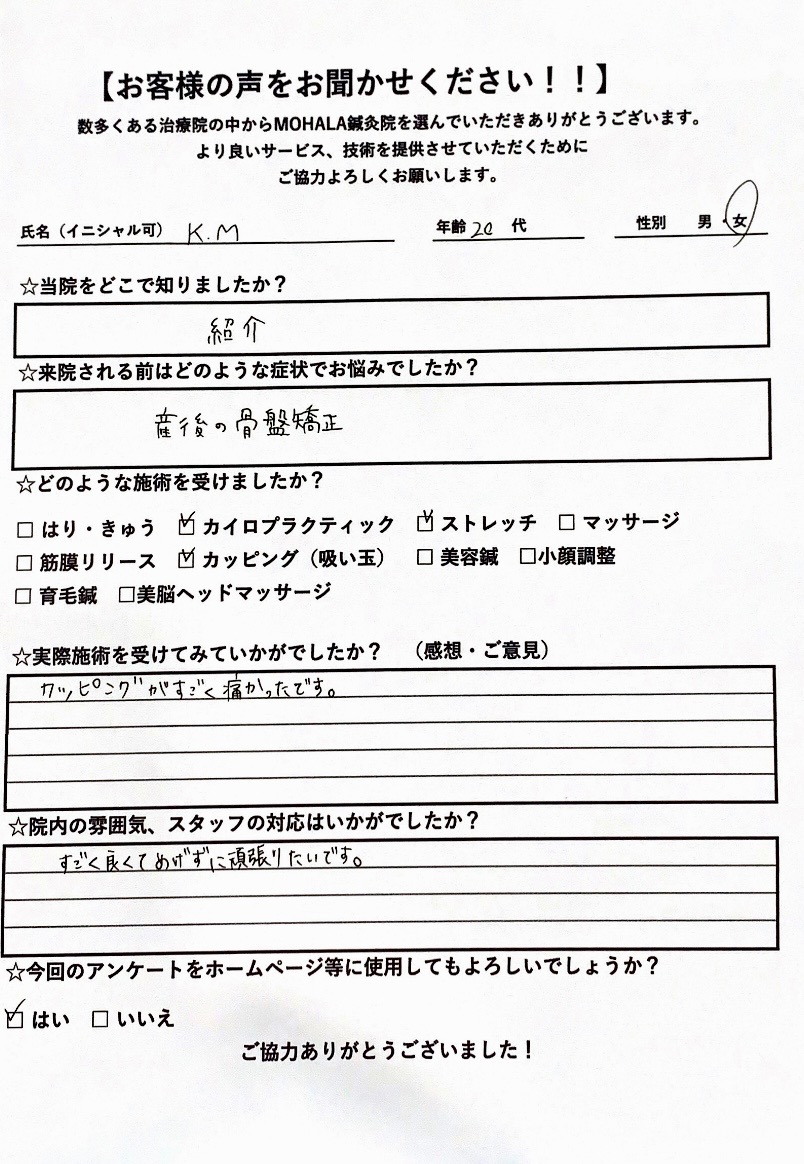 【お客様の声をお聞かせください！！】
数多くある治療院の中からMOHALA鍼灸院を選んでいただきありがとうございます。
より良いサービス、技術を提供させていただくために
ご協力よろしくお願いします。
氏名（イニシャル可） K.M 年齢 20 代 性別 男・女
☆当院をどこで知りましたか？
紹介
☆来院される前はどのような症状でお悩みでしたか？
産後の骨盤矯正
☆どのような施術を受けましたか？
□ はり・きゅう ☑ カイロプラクティック ☑ ストレッチ □ マッサージ
□ 筋膜リリース ☑ カッピング（吸い玉） □ 美容鍼 □小顔調整
□ 育毛鍼 □美脳ヘッドマッサージ
☆実際施術を受けてみていかがでしたか？ （感想・ご意見）
カッピングがすごく痛かったです。
☆院内の雰囲気、スタッフの対応はいかがでしたか？
すごく良くてめげずに頑張りたいです。
☆今回のアンケートをホームページ等に使用してもよろしいでしょうか？
☑ はい □ いいえ
ご協力ありがとうございました！